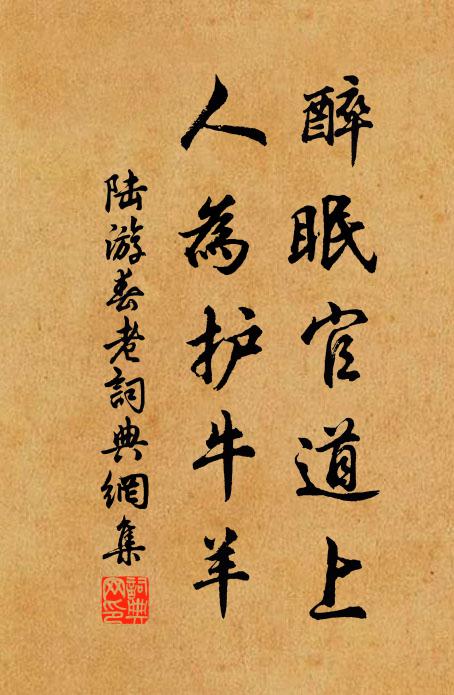 醉眠官道上
人為护牛羊
陆游春老詞典網集
詞典
网印